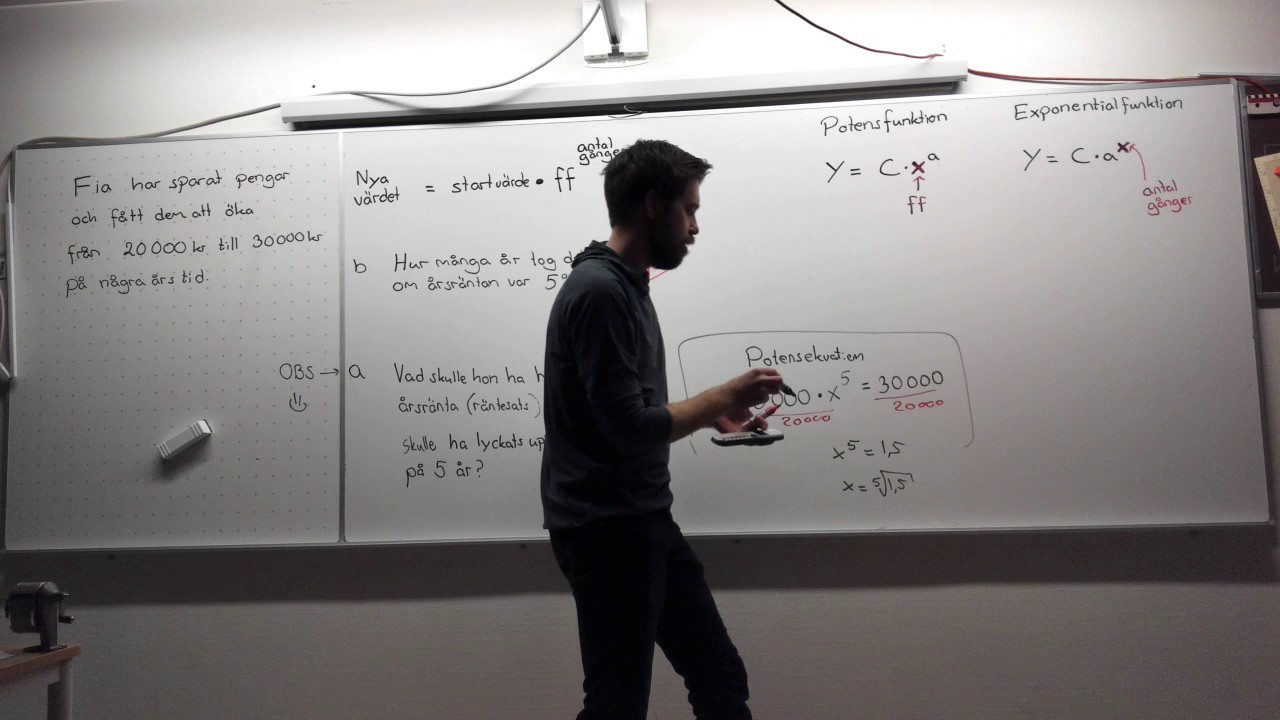 Fia har sparat pengar
och fått dem att öka
från 20000 kr till 30000 kr
på några års tid.
Nya
värdet
= startvärde • ff
antal
gånger
b Hur många år tog
om årsräntan var
OBS → a Vad skulle hon ha
årsränta (räntesats)
skulle ha lyckats
på 5 år?
Potensfunktion
Y = C·x^a
↑
ff
Exponentialfunktion
Y = C·a^x
antal
gånger
Potensekvation
000 • x^5 = 30000
20000 20000
x^5 = 1,5
x = ⁵√1,5